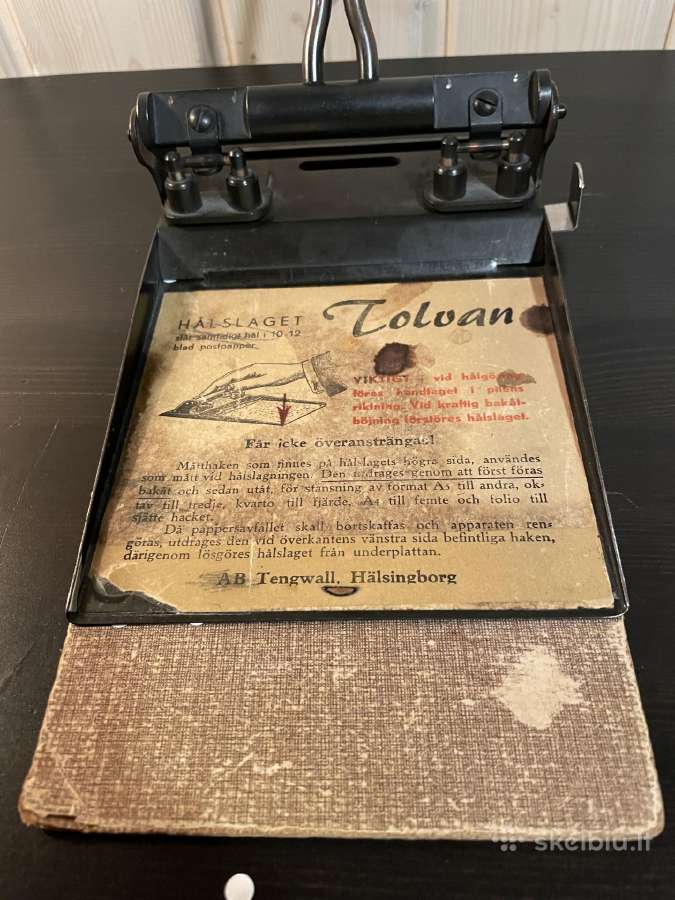 HÅLSLAGET
slår samtidigt hål i 10-12
blad postpapper
Tolvan
VIKTIGT vid hålgöring
föres handtaget i pilens
riktning. Vid kraftig bakåt-
böjning förstöres hålslaget.
Får icke överansträngas!
Måtthaken som finnes på hålslagets högra sida, användes
som mått vid hålslagningen. Den utdrages genom att först föras
bakåt och sedan utåt, för stansning av format A5 till andra, ok-
tav till tredje, kvarto till fjärde, A4 till femte och folio till
sjätte hacket.
Då pappersavfallet skall bortskaffas och apparaten ren-
göras, utdrages den vid överkantens vänstra sida befintliga haken,
därigenom lösgöres hålslaget från underplattan.
AB Tengwall, Hälsingborg
skelbiu.lt